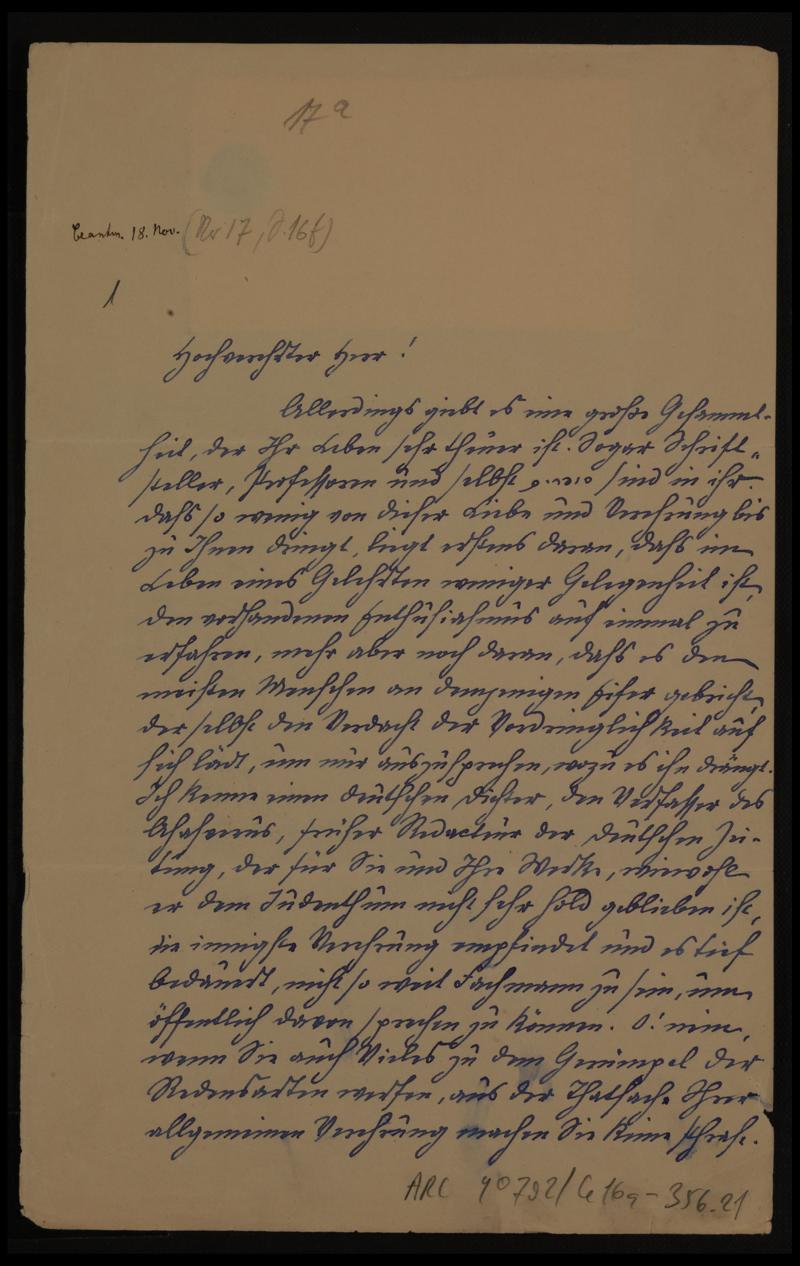 17a
Beantw. 18. Nov. (Nr 17, S. 16f)
1
Hochverehrter Herr!
Allerdings giebt es eine große Gesammt-
heit, der Ihr Leben sehr theuer ist. Sogar Schrift-
steller, Professoren und selbst sind in ihr.
daß so wenig von dieser Liebe und Verehrung bis
zu Ihnen dringt, liegt erstens daran, daß im
Leben eines Gelehrten weniger Gelegenheit ist,
den vorhandenen Enthusiasmus auf einmal zu
erfahren, mehr aber noch daran, daß es den
meisten Menschen an demjenigen Eifer gebricht,
der selbst den Verdacht der Vordringlichkeit auf
sich lädt, um nur auszusprechen, wozu es ihn drängt.
Ich kenne einen deutschen Dichter, den Verfasser des
Ahasverus, früher Redacteur der deutschen Zei-
tung, der für Sie und Ihre Werke, wiewohl
er dem Judenthum nicht sehr hold geblieben ist,
die innigste Verehrung empfindet und es tief
bedauert, nicht so weit Fachmann zu sein, um
öffentlich davon sprechen zu können. O! nein,
wenn Sie auch Vieles zu dem Gerümpel der
Redensarten werfen, aus der Thatsache Ihrer
allgemeinen Verehrung machen Sie keine Phrase.
ARC 4° 792/G 16a - 356.21